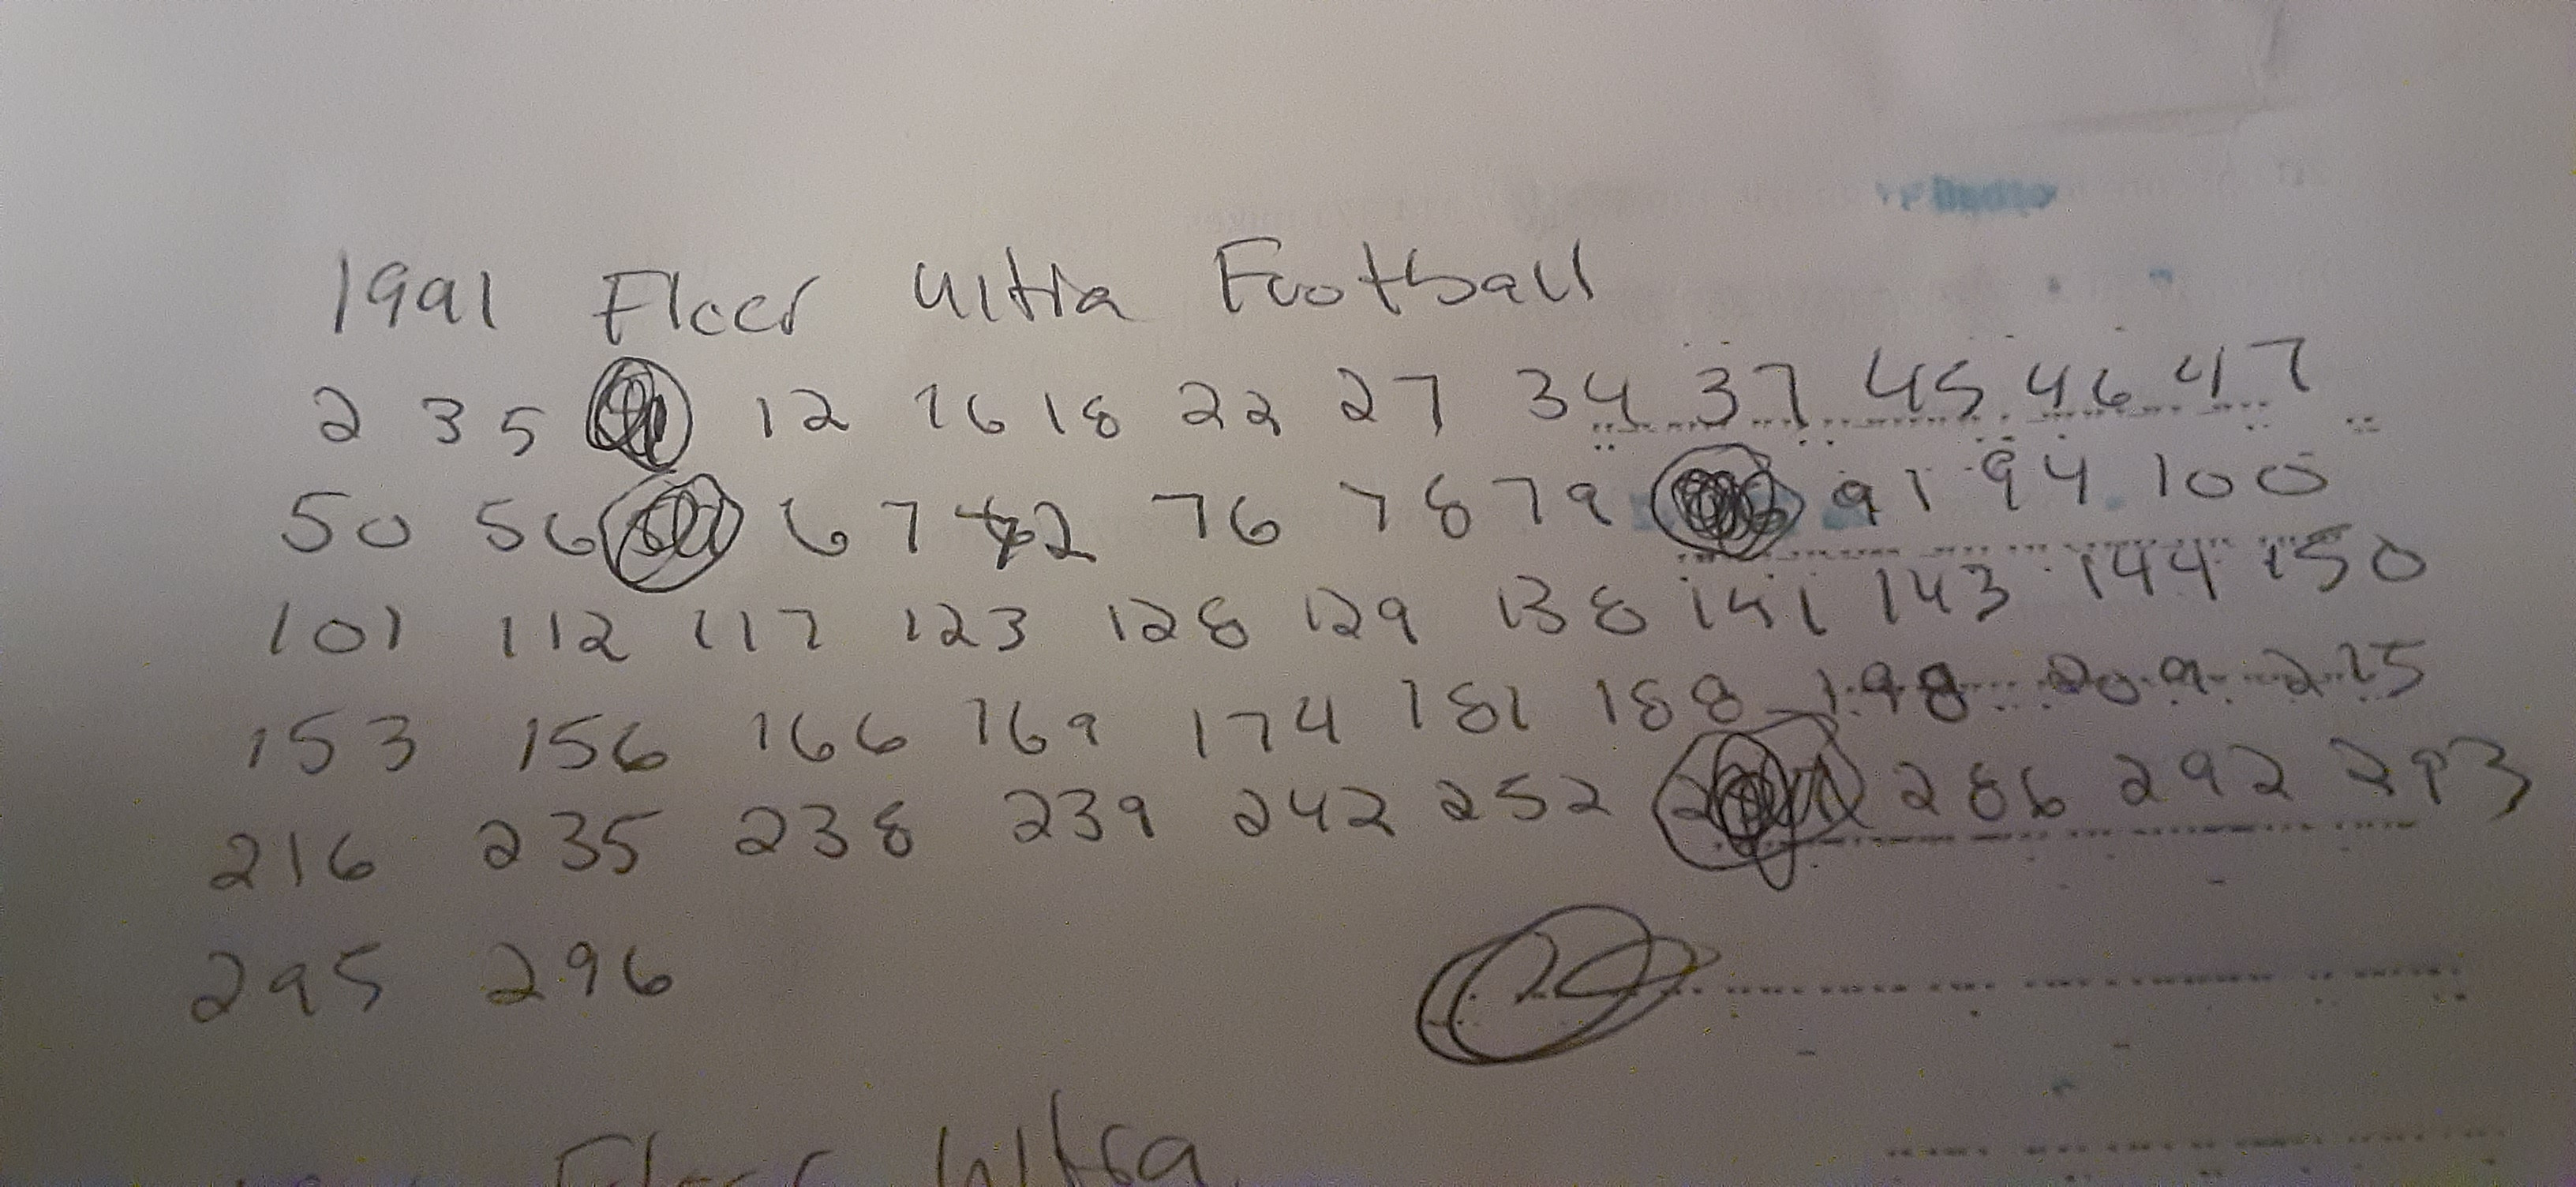 1991 Fleer Ultra Football
2 3 5 12 16 18 22 27 34 37 45 46 47
50 56 67 72 76 78 79 91 94 100
101 112 117 123 128 129 138 141 143 144 150
153 156 166 169 174 181 188 198 209 215
216 235 238 239 242 252 286 292 293
295 296
Fleer Ultra